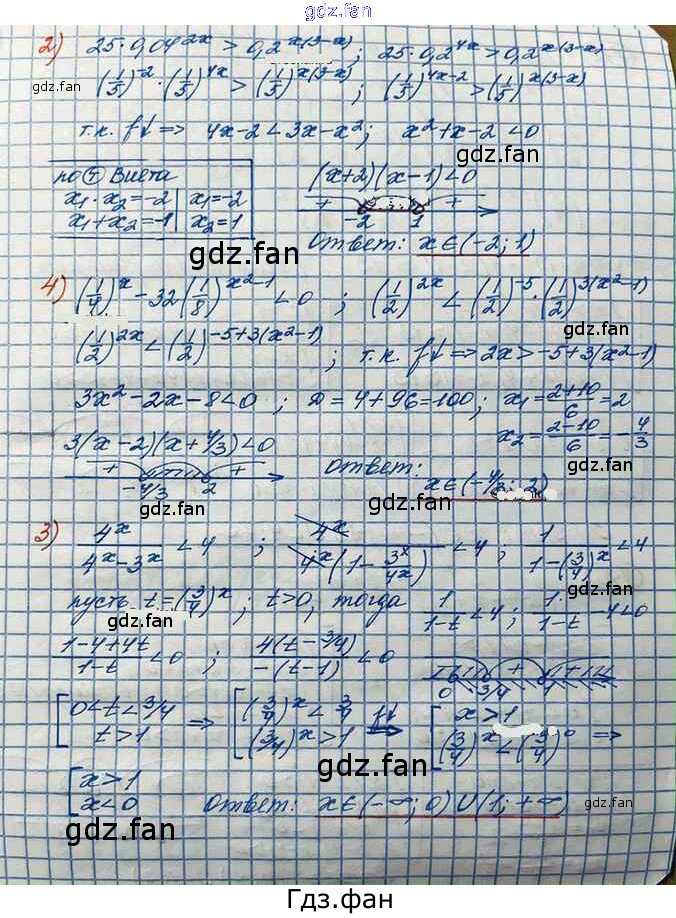 gdz.fan
2) 25·0,04^{2x} > 0,2^{x(3-x)}; 25·0,2^{4x} > 0,2^{x(3-x)}
gdz.fan
(1/5)^{-2}·(1/5)^{4x} > (1/5)^{x(3-x)}; (1/5)^{4x-2} > (1/5)^{x(3-x)}
gdz.fan
т.к. f↓ => 4x-2 < 3x-x²; x²+x-2 < 0
gdz.fan
по Т Виета
x₁·x₂=-2 | x₁=-2
x₁+x₂=-1 | x₂=1
(x+2)(x-1)<0
+ - +
-2 1
gdz.fan
Ответ: x∈(-2; 1)
4) (1/4)^x - 32(1/8)^{x²-1} < 0; (1/2)^{2x} < (1/2)^{-5}·(1/2)^{3(x²-1)}
gdz.fan
gdz.fan
(1/2)^{2x} < (1/2)^{-5+3(x²-1)}; т.к. f↓ => 2x > -5+3(x²-1)
3x²-2x-8<0; D=4+96=100; x₁=(2+10)/6=2
x₂=(2-10)/6=-4/3
3(x-2)(x+4/3)<0
+ - +
-4/3 2
Ответ: x∈(-4/3; 2)
gdz.fan
gdz.fan
3) 4^x/(4^x-3^x) < 4; 4^x/(4^x(1-3^x/4^x)) < 4; 1/(1-(3/4)^x) < 4
gdz.fan
пусть t=(3/4)^x; t>0, тогда 1/(1-t) < 4; 1/(1-t) - 4 < 0
gdz.fan
(1-4+4t)/(1-t) < 0; 4(t-3/4)/(-(t-1)) < 0
gdz.fan
0 3/4 1
[0<t<3/4 => [(3/4)^x < 3/4 f↓ => [x>1
[t>1 [(3/4)^x > 1 [(3/4)^x < (3/4)^0 =>
gdz.fan
gdz.fan
[x>1
[x<0 Ответ: x∈(-∞; 0)∪(1; +∞)
gdz.fan
gdz.fan
gdz.fan
Гдз.фан